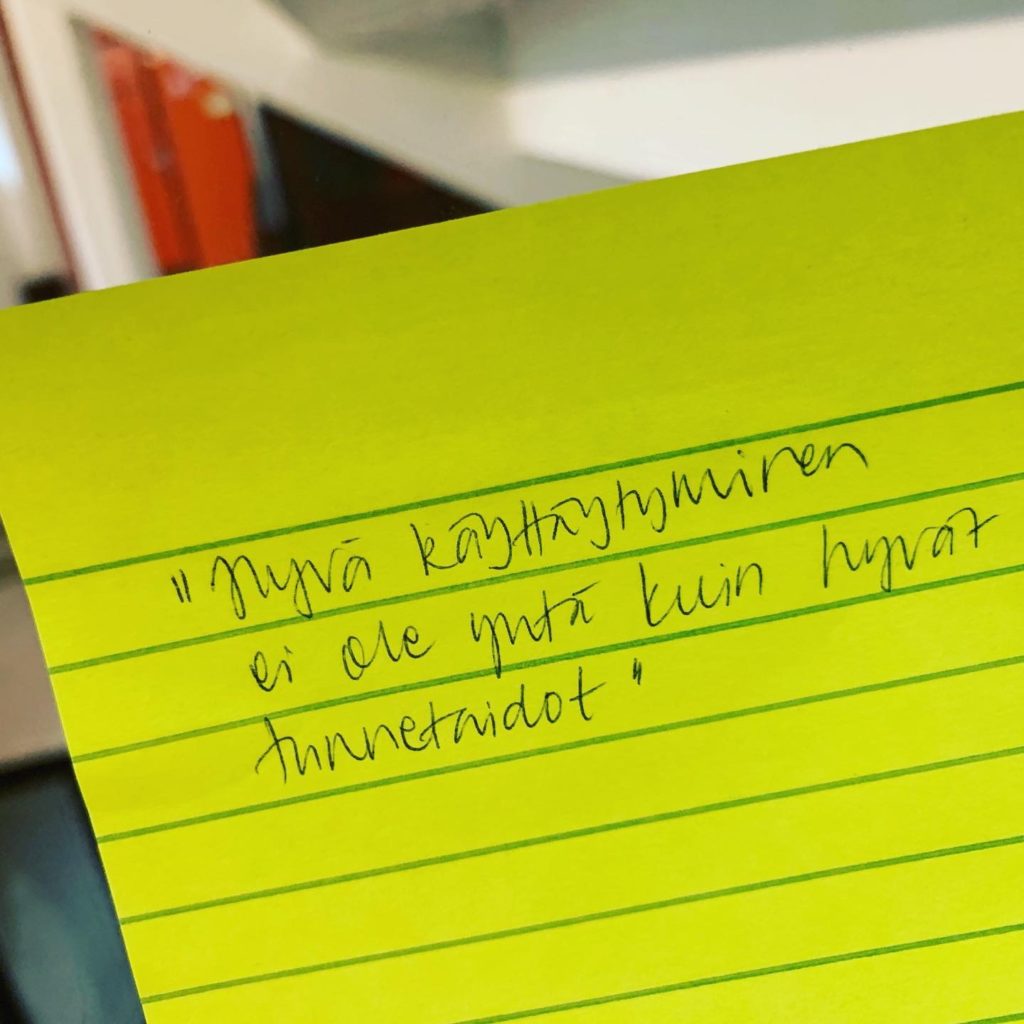 "Hyvä käyttäytyminen
ei ole yhtä kuin hyvät
tunnetaidot"